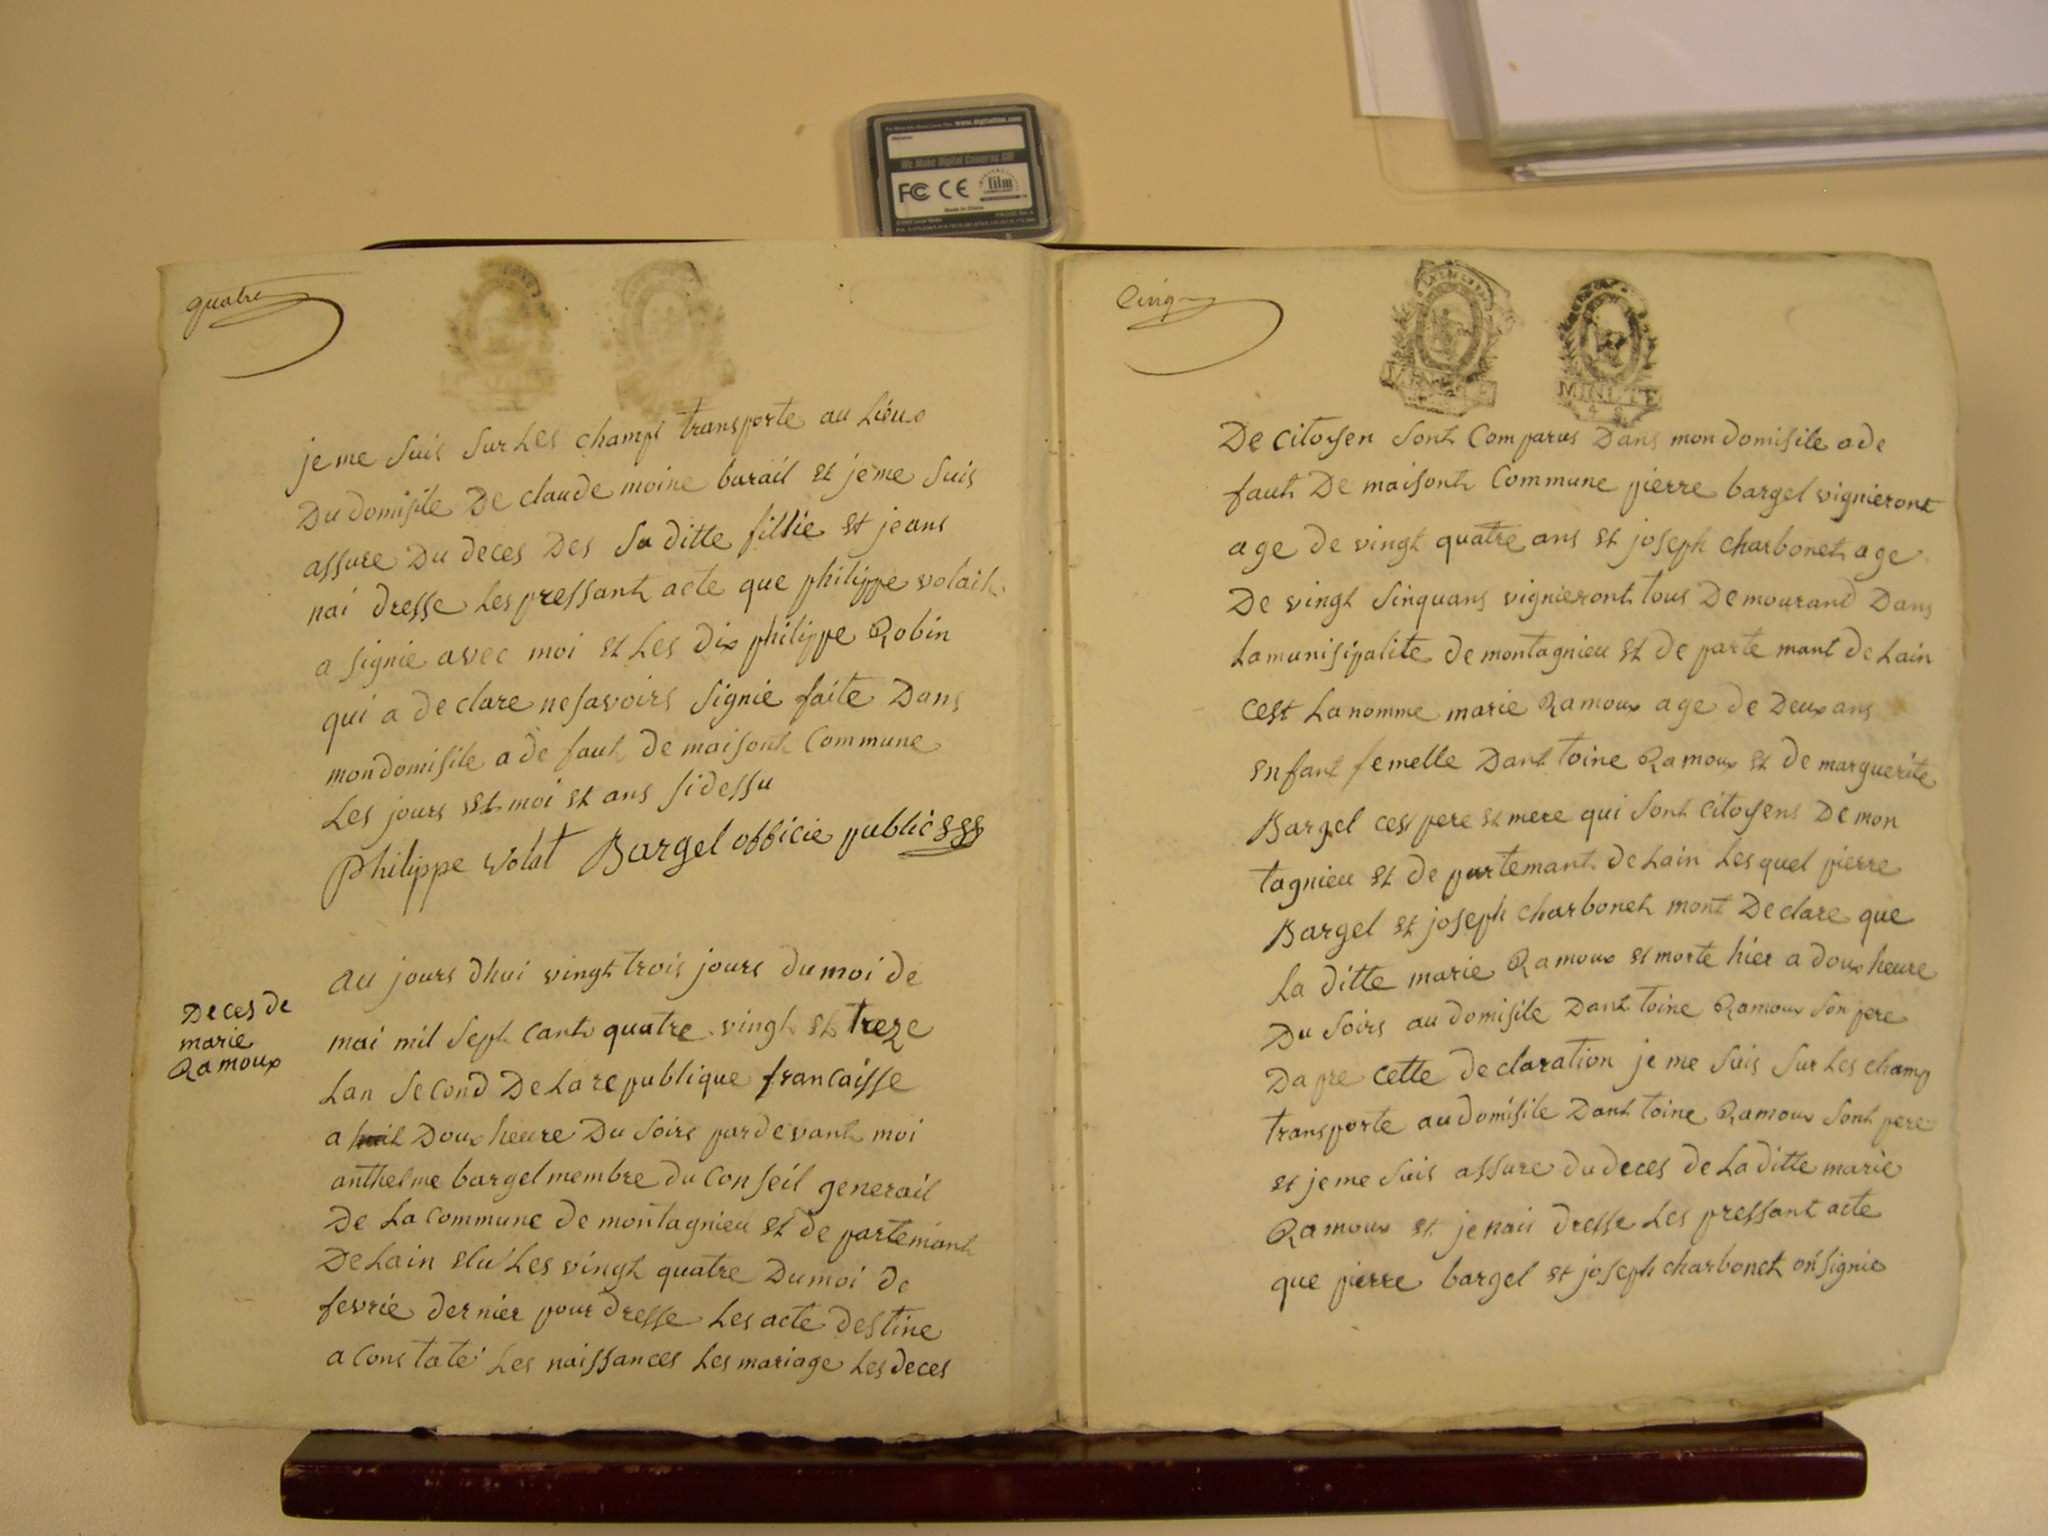 www.digitalfilm.com
We Make Digital Cameras GO!
FC CE film
Made in China
quatre
je me suis sur Les champs transporte au Lieux
Du domisile De claude moine barail et je me suis
assure Du deces Des sa ditte fillie et jeans
nai dresse Les pressant acte que philippe volait
a signie avec moi et Les dix philippe Robin
qui a declare ne savoirs signie faite Dans
mon domisile a de faut de maisont Commune
Les jours et moi et ans sidessu
philippe volat Bargel officie public
Deces de
marie
Ramoux
au jours dhui vingt trois jours du moi de
mai mil sept cant quatre vingt et treze
Lan second De La republique francaisse
a huit Doux heure Du soirs par devant moi
anthelme bargel membre du Conseil generail
De La commune de montagnieu et de partemant
De Lain elu Les vingt quatre Du moi de
fevrie dernier pour dresse Les acte destine
a constate Les naissances Les mariage Les deces
Cinq
MINUTE
De citoyen sont Comparus Dans mon domisile a de
faut De maisont Commune pierre bargel vignieront
age de vingt quatre ans et joseph charbonet age
De vingt sinquans vignieront tous Demourand Dans
La munisipalite de montagnieu et de parte mant de Lain
cest La nomme marie Ramoux age de Deux ans
enfant femelle Dant toine Ramoux et de marguerite
Bargel ces pere et mere qui sont citoyens De mon
tagnieu et de partemant de Lain Les quel pierre
Bargel et joseph charbonet mont Declare que
La ditte marie Ramoux et morte hier a doux heure
Du soirs au domisile Dant toine Ramoux son pere
Dapre cette declaration je me suis sur Les champ
transporte au domisile Dant toine Ramoux sont pere
et je me suis assure du deces de La ditte marie
Ramoux et je nais dresse Les pressant acte
que pierre bargel et joseph charbonet on signie